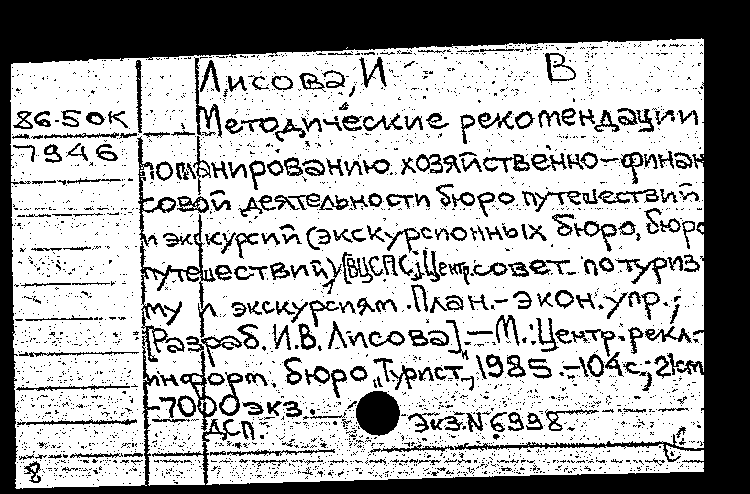 Лисова, И В
86-50К Методические рекомендации
7946
по планированию хозяйственно-финан
совой деятельности бюро путешествий
и экскурсий (экскурсионных бюро, бюро
путешествий)/[ВЦСПС; Центр. совет по туриз
му и экскурсиям. План.-экон. упр.;
[Разраб. И.В. Лисова].—М.: Центр. рекл.-
информ. бюро „Турист", 1985.-104с.; 21см
-7000экз.
ДСП. Экз.N 6998.
8